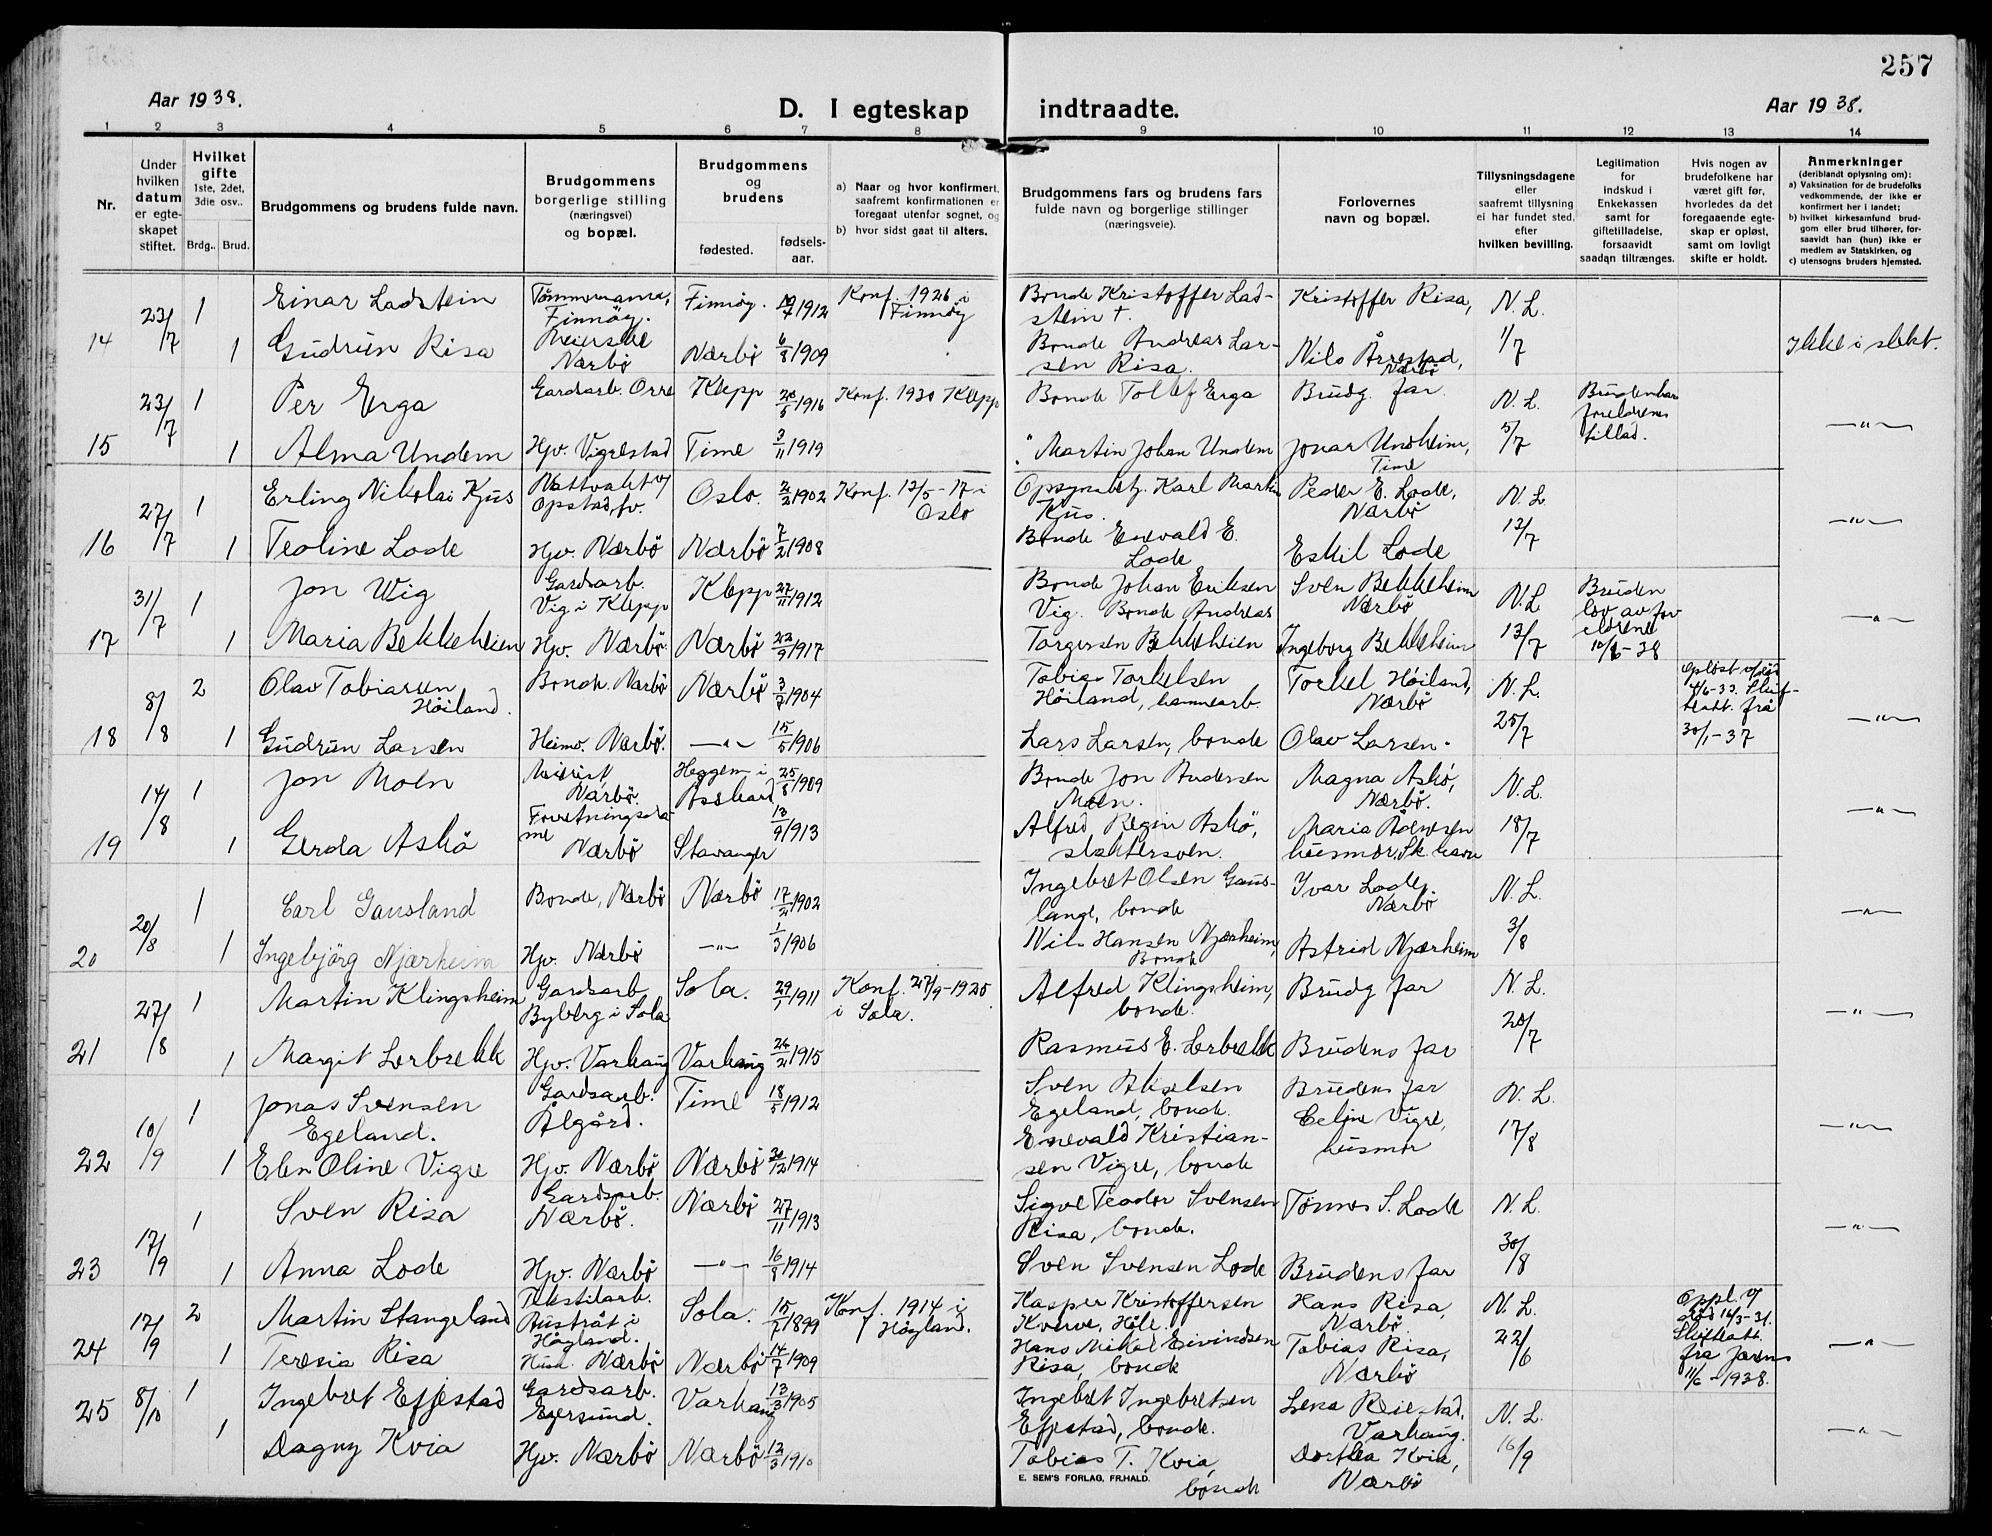 257
Aar 1938.
D. I egteskap indtraadte.
Aar 1938.
1 2 3 4 5 6 7 8 9 10 11 12 13 14
Nr.
Under hvilken datum er egteskapet stiftet.
Hvilket gifte 1ste, 2det, 3die osv..
Brdg.. Brud.
Brudgommens og brudens fulde navn.
Brudgommens borgerlige stilling (næringsvei) og bopæl.
Brudgommens og brudens
fødested. fødsels-aar.
a) Naar og hvor konfirmert, saafremt konfirmationen er foregaat utenfor sognet, og
b) hvor sidst gaat til alters.
Brudgommens fars og brudens fars fulde navn og borgerlige stillinger (næringsveie).
Forlovernes navn og bopæl.
Tillysningsdagene eller saafremt tillysning ei har fundet sted, efter hvilken bevilling.
Legitimation for indskud i Enkekassen samt for giftetilladelse, forsaavidt saadan tiltrænges.
Hvis nogen av brudefolkene har været gift før, hvorledes da det foregaaende egteskap er opløst, samt om lovligt skifte er holdt.
Anmerkninger (deriblandt oplysning om):
a) Vaksination for de brudefolks vedkommende, der ikke er konfirmert her i landet;
b) hvilket kirkesamfund brudgom eller brud tilhører, forsaavidt han (hun) ikke er medlem av Statskirken, og
c) utensogns bruders hjemsted.
14 23/7 1 Einar Ladstein Finnöy. Finnöy. 1912 Konf. 1926 i Finnöy Bonde Kristoffer Ladstein †. Kristoffer Risa, N. L.
1 Gudrun Risa Nærbö Nærbö 6/8 1909 Bonde Andreas Larsen Risa. Nils Årrestad, Nærbö 1/7 Ikke i slekt.
15 23/7 1 Per Erga Gardsarb. Orre Klepp 1916 Konf. 1930 Klepp Bonde Tollef Erga Brudg. far. N. L.
1 Alma Undem Hjv. Vigrestad Time 3/11 1919 " Martin Johan Undem Jonar Undheim, Time 5/7 —"—
16 27/7 1 Erling Nikolai Kjus Opstad, fv. Oslo. 2/2 1902 Konf. 13/5-17 i Oslo Karl Martin Kjus. Peder E. Lode, Nærbö N. L.
1 Teoline Lode Hjv. Nærbö Nærbö 7/2 1908 Bonde Enevald E. Lode Eskil Lode 12/7 —"—
17 31/7 1 Jon Wig Gardsarb. Vig i Klepp Klepp 27/11 1912 Bonde Johan Eriksen Vig. Sven Bekkeheim Nærbö N. L.
1 Maria Bekkeheien Hjv. Nærbö. Nærbö 22/9 1917 Bonde Andreas Torgersen Bekkeheien Ingeborg Bekkeheim 13/7 —"—
18 8/8 2 Olav Tobiasen Höiland. Bonde. Nærbö Nærbö 3/7 1904 Tobias Torkelsen Höiland, Torkel Höiland, Nærbö N. L. 30/1-37
1 Gudrun Larsen Heimv. Nærbö. —"— 15/5 1906 Lars Larsen, bonde Olav Larsen. 25/7 —"—
19 14/8 1 Jon Moen Meierist, Nærbö. Heggem i 25/8 1909 Bonde Jon Andersen Moen. Magna Askö, Nærbö. N. L.
1 Gerda Askö Nærbö Stavanger 13/9 1913 Alfred Regin Askö, Maria husmor, 18/7 —"—
20 20/8 1 Carl Gausland Bonde, Nærbö Nærbö 17/2 1902 Ingebret Olsen Gausland, bonde Ivar Lode. Nærbö N. L.
1 Ingebjörg Njærheim Hjv. Nærbö —"— 1/3 1906 Nils Hansen Njærheim, Bonde Astrid Njærheim 3/8 —"—
21 27/8 1 Martin Klingsheim Gardsarb. Byberg i Sola Sola. 29/1 1911 Konf. 27/9-1925 i Sola. Alfred Klingsheim, bonde. Brudg far N. L.
1 Margit Lerbrekk Hjv. Varhaug Varhaug 24/2 1915 Rasmus E. Lerbrekk Brudens far 20/7 —"—
22 10/9 1 Jonas Svensen Egeland. Gardsarb. Ålgård. Time 18/5 1912 Sven Akselsen Egeland, bonde. Brudens far N. L.
1 Elen Oline Vigre Hjv. Nærbö Nærbö 30/12 1914 Enevald Kristiansen Vigre, bonde Celine Vigre, husmor 17/8 —"—
23 17/9 1 Sven Risa Gardsarb. Nærbö. Nærbö 27/11 1913 Sigve Teodor Svensen Risa, bonde. Tönnes S. Lode N. L.
1 Anna Lode Hjv. Nærbö —"— 16/8 1914 Sven Svensen Lode Brudens far 30/8 —"—
24 17/9 2 Martin Stangeland Tekstilarb. Austråt i Högland. Sola. 15/7 1899 Konf. 1914 i Högland. Kasper Kristoffersen Kverve, Höle. Hans Risa, Nærbö N. L. Oppl. v/ död 16/3-31. Skifteatt. fra Jæren 11/6-1938.
1 Teresia Risa Nærbö Nærbö 14/7 1909 Hans Mikal Eivindsen Risa, bonde Tobias Risa, Nærbö 22/6 —"—
25 8/10 1 Ingebret Efjestad Gardsarb. Egersund. Varhaug 13/3 1905 Ingebret Ingebretsen Efjestad, bonde. Lena Varhaug. N. L.
1 Dagny Kvia Hjv. Nærbö Nærbö 12/3 1910 Tobias T. Kvia, bonde Dorthea Kvia, Nærbö 16/9 —"—
E. SEM'S FORLAG, FR.HALD.